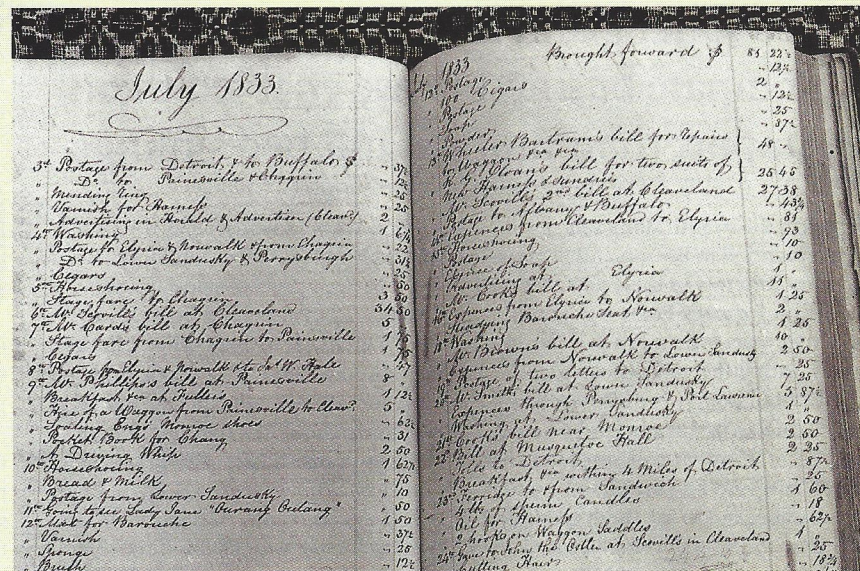 July 1833.
3d Postage from Detroit & to Buffalo $ " 37½
" Do. to Painesville & Chagrin " 12½
" Mending Ring " 25
" Varnish for Harness " 25
" Advertising in Herald & Advertiser (Cleavd) 2 "
4th Washing 1 6¼
" Postage to Elyria & Norwalk & from Chagrin " 22
" Do. to Lower Sandusky & Perrysburgh " 31¼
" Cegars " 25
5th Horseshoeing " 50
" Stage fare to Chagrin 3 50
6th Mr. Scovill's bill at Cleaveland 34 50
7th Mr. Card's bill at Chagrin 5 "
" Stage fare from Chagrin to Painsville 1 75
" Cegars 1 75
8th Postage from Elyria & Norwalk & to Js. W. Hale " 47
9th Mr. Phillips's bill at Painesville 8 "
" Breakfast &c at Fullers 1 12½
" Hire of a Waggon from Painesville to Cleavd. 5 "
" Soaling Engs Monroe shoes " 63
" Pocket Book for Chang " 31
" A Driving Whip 2 50
10th Horseshoeing 1 62½
" Bread & Milk " 75
" Postage from Lower Sandusky " 10
11th Going to see Lady Jane "Ourang Outang" " 50
12th Matt for Barouche 1 50
" Varnish " 37½
" Sponge " 25
" Brush " 12½
Brought forward $ 83 22½
1833
13th Postage " 12½
" 100 Cigars 2 "
" Postage " 12½
" Soap " 25
" Powder " 37½
15th Wheeler Bartram's bill for repairs
to Waggon &c &c 48 "
Sloan's bill for two suits of
New Harness & Sundries 25 45
" Mr. Scovills 2nd bill at Cleaveland 27 38
" Postage to Albany & Buffalo " 43¾
" Expences from Cleaveland to Elyria " 81
Horseshoeing " 93
" Postage " 10
of Soap " 10
" Advertising at Elyria 1 "
" Mr. Cook's bill at 11 "
Expences from Elyria to Norwalk 1 25
Barouche Seat &c 2 "
Washing 1 25
" Mr. Brown's bill at Norwalk 10 "
Expences from Norwalk to Lower Sandusky 2 50
Postage of two letters to Detroit " 25
Mr. Smiths bill at Lower Sandusky 7 25
Expences through Perrysburg & Port Lawrence 5 87½
Washing at Lower Sandusky 1 "
21st Cook's bill near Monroe 2 50
22d Bill at Musquetoe Hall 2 50
" Tolls to Detroit 2 25
" Breakfast &c within 4 Miles of Detroit " 87½
23d Ferriage to & from Sandwich " 25
" 4 lbs of sperm Candles 1 60
" Oil for Harness " 18
" 2 hooks on Waggon Saddles " 62½
24th Gave to John the at Scovills in Cleaveland 1 "
" Cutting Hair " 25
" 18¾